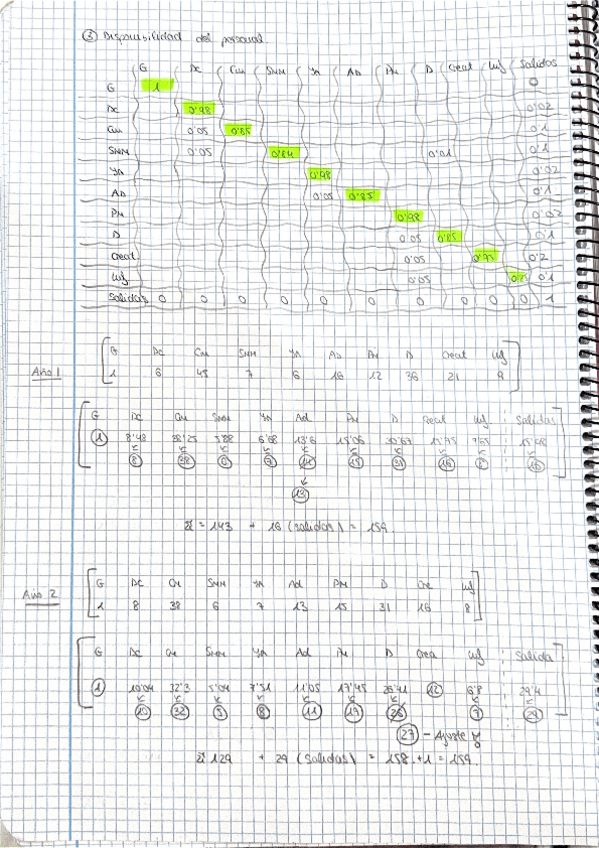 ③ Disponibilidad del personal.
G DC CM SMM YA AD PM D Creat Wf Salidas
G 1 0
DC 0'98 0'02
CM 0'05 0'85 0'1
SMM 0'05 0'84 0'01 0'1
YA 0'98 0'02
AD 0'05 0'85 0'1
PM 0'98 0'02
D 0'05 0'85 0'1
Creat 0'05 0'75 0'2
Wf 0'05 0'1
Salidas 0 0 0 0 0 0 0 0 0 0 1
G DC CM SMM YA AD PM D Creat Wf
Año 1 1 6 45 7 6 16 12 36 21 9
G DC CM SMM YA Ad PM D Creat Wf Salidas
1 8'43 38'25 5'88 6'68 13'6 15'06 30'67 15'75 7'65
8 38 6 7 14 15 31 16 8 16
13
Σ = 143 + 16 (salidas) = 159.
G DC CM SMM YA Ad PM D Crea Wf
Año 2 1 8 38 6 7 13 15 31 16 8
G DC CM SMM YA Ad PM D Crea Wf Salida
1 10'04 32'3 5'04 7'51 11'05 17'45 26'41 12 6'8 29'4
10 32 5 8 11 17 26 7 29
27 – Ajuste
Σ 129 + 29 (Salidas) = 158 + 1 = 159.